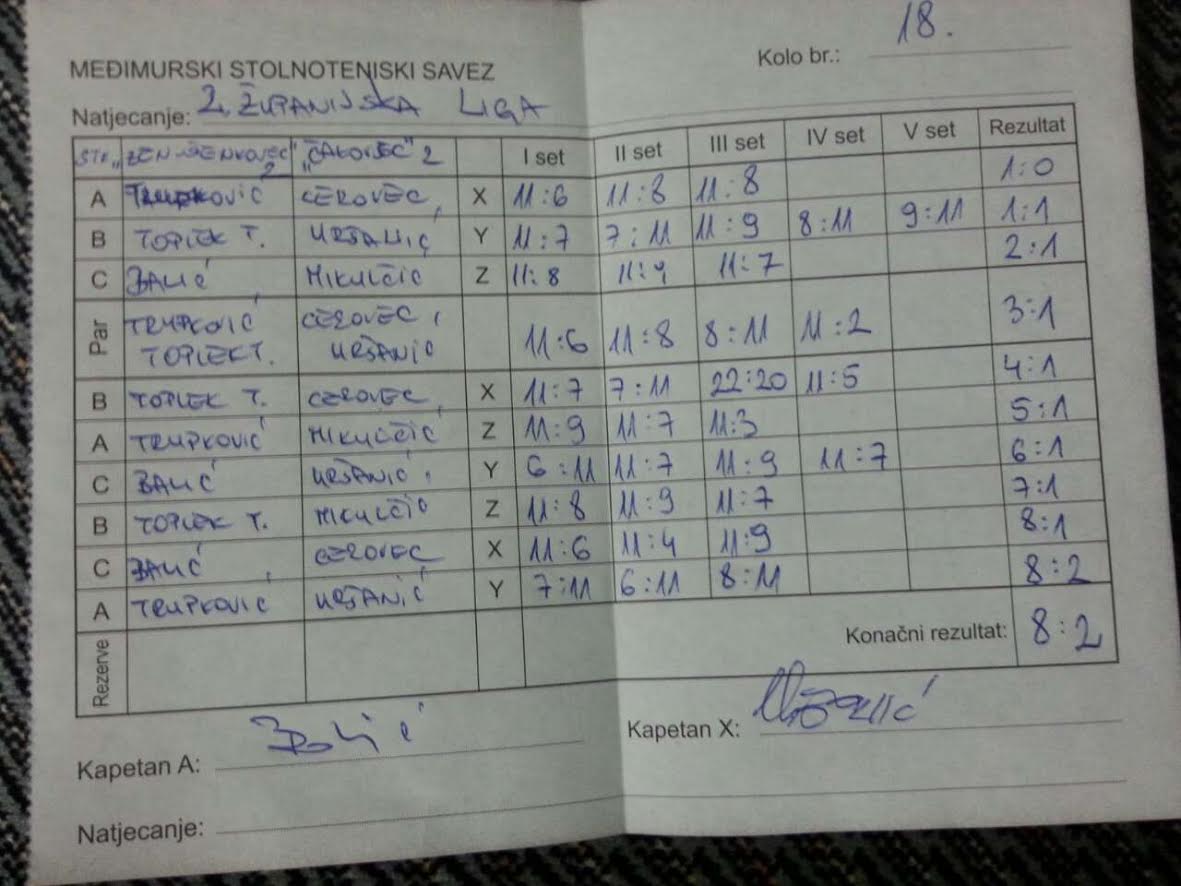 Kolo br.: 18.
MEĐIMURSKI STOLNOTENISKI SAVEZ
Natjecanje: 2. ŽUPANIJSKA LIGA
"ČAKOVEC" 2 I set II set III set IV set V set Rezultat
A TRUPKOVIĆ CEROVEC X 11:6 11:8 11:8 1:0
B TOPLEK T. URŠANIĆ Y 11:7 7:11 11:9 8:11 9:11 1:1
C BALIĆ MIKULČIĆ Z 11:8 11:4 11:7 2:1
Par TRUPKOVIĆ CEROVEC, 11:6 11:8 8:11 11:2 3:1
TOPLEK T. URŠANIĆ
B TOPLEK T. CEROVEC X 11:7 7:11 22:20 11:5 4:1
A TRUPKOVIĆ MIKULČIĆ Z 11:9 11:7 11:3 5:1
C BALIĆ URŠANIĆ Y 6:11 11:7 11:9 11:7 6:1
B TOPLEK T. MIKULČIĆ Z 11:8 11:9 11:7 7:1
C BALIĆ CEROVEC X 11:6 11:4 11:9 8:1
A TRUPKOVIĆ URŠANIĆ Y 7:11 6:11 8:11 8:2
Rezerve Konačni rezultat: 8:2
Kapetan A: Balić Kapetan X:
Natjecanje: